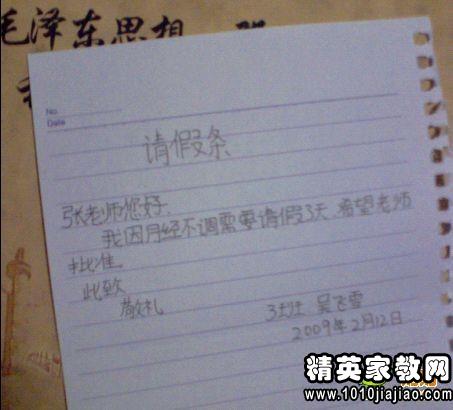 毛泽东思想
No.
Date
请假条
张老师您好.
我因月经不调需要请假3天.希望老师
批准.
此致
敬礼
3班 吴飞雪
2009年2月12日
精英家教网
www.1010jiajiao.com